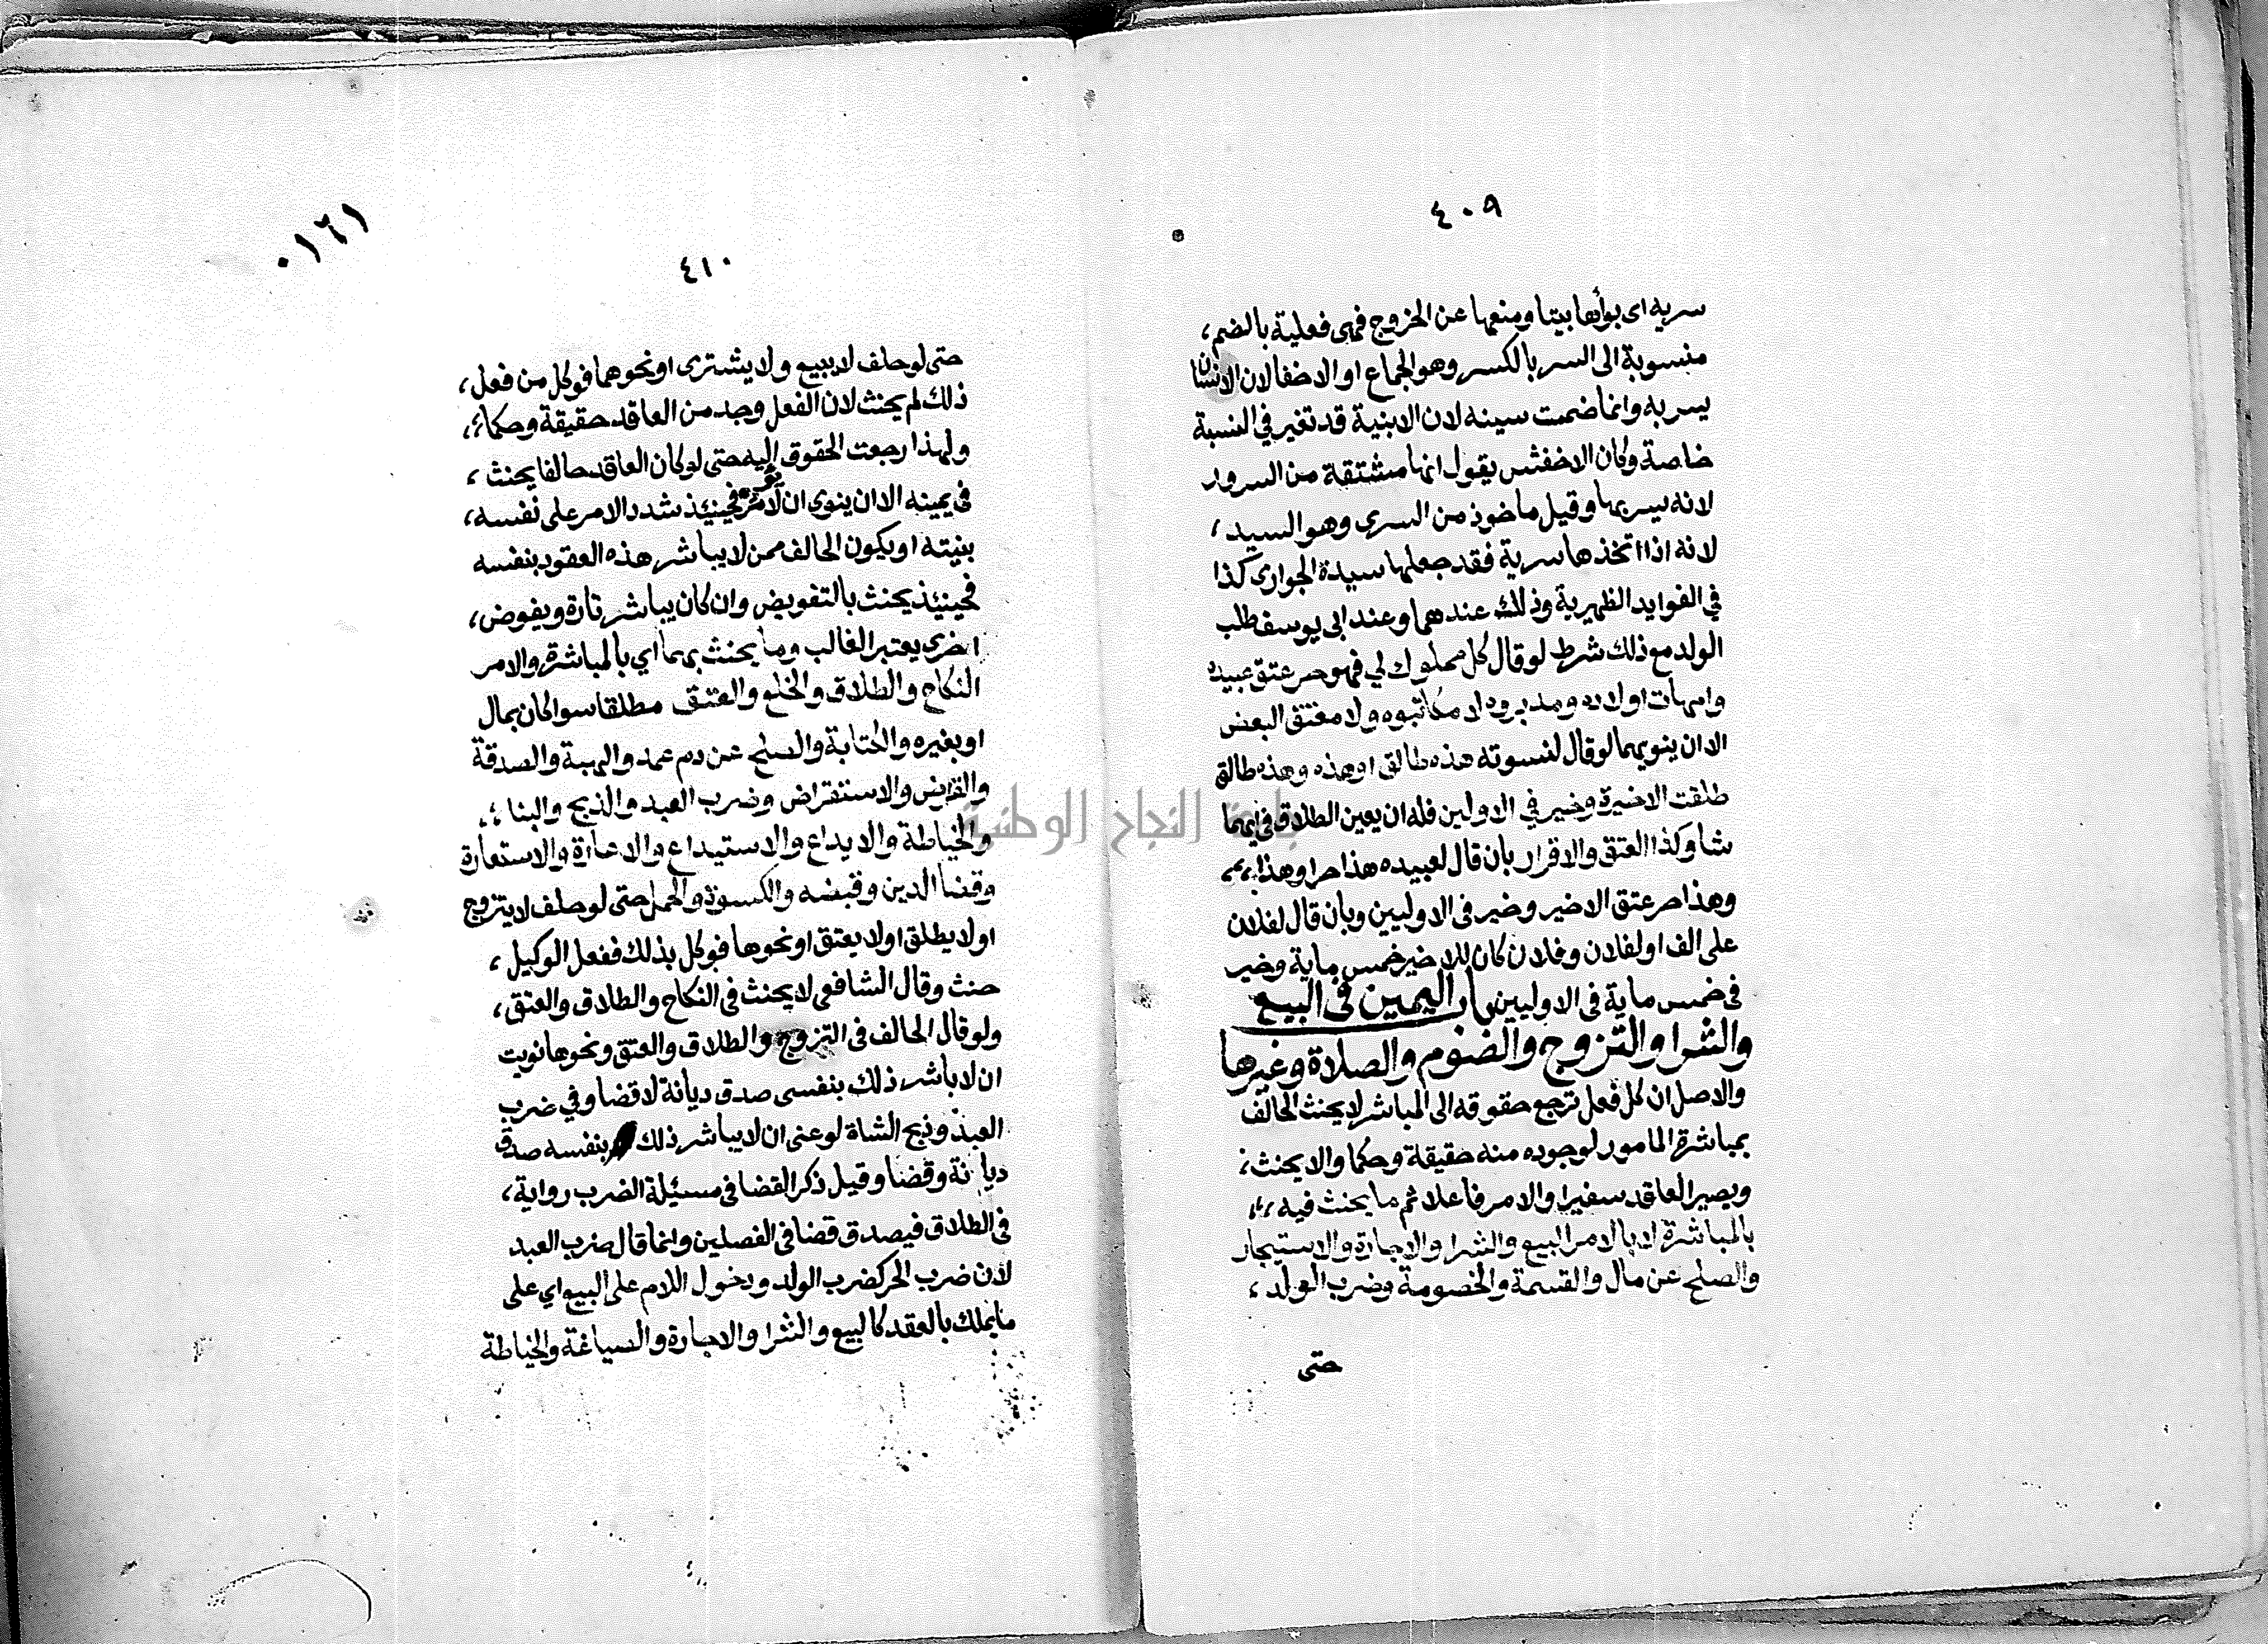 ٤٠٩
سريه اى بوأها بيتا ومنعها عن الخروج فهى فعلية بالضم،
منسوبة الى السر بالكسر وهو الجماع او الاخفا لان الانسان
يسر به وانما ضمت سينه لان الابنية قد تغير في النسبة
خاصة وكان الاخفش يقول انها مشتقة من السرور
لانه يسر بها وقيل ماخوذ من السرى وهو السيد،
لانه اذا اتخذها سرية فقد جعلها سيدة الجوارى كذا
في الفوايد الظهيرية وذلك عندهما وعند ابى يوسف طلب
الولد مع ذلك شرط لو قال كل مملوك لي فهو حر عتق عبيده
وامهات اولاده ومدبروه لا مكاتبوه ولا معتق البعض
الا ان ينويهما لو قال لنسوته هذه طالق او هذه وهذه طالق
طلقت الاخيرة وخير في الاولين فله ان يعين الطلاق في ايهما
شا وكذا العتق والاقرار بان قال لعبيده هذا حر او هذا،،
وهذا حر عتق الاخير وخير فى الاوليين وبان قال لفلان
على الف او لفلان وفلان كان للاخير خمس ماية وخير
فى خمس ماية فى الاوليين باب اليمين فى البيع
والشرا والتزوج والصوم والصلاة وغيرها
والاصل ان كل فعل ترجع حقوقه الى المباشر لا يحنث الحالف
بمباشرة المامور لوجوده منه حقيقة وحكما والا يحنث؛
ويصير العاقد سفيرا والامر فاعلا ثم ما يحنث فيه،،
بالمباشرة لا بالامر البيع والشرا والاجارة والاستيجار
والصلح عن مال والقسمة والخصومة وضرب الولد،
حتى
٠١٦١
٤١٠
حتى لو حلف لا يبيع ولا يشترى او نحوهما فوكل من فعل،
ذلك لم يحنث لان الفعل وجد من العاقد حقيقة وحكما،
ولهذا رجعت الحقوق اليه حتى لو كان العاقد حالفا يحنث،
فى يمينه الا ان ينوى ان لا يامر فحينئذ شدد الامر على نفسه،
بنيته او يكون الحالف ممن لا يباشر هذه العقود بنفسه
فحينئذ يحنث بالتفويض وان كان يباشر تارة ويفوض،
اخرى يعتبر الغالب وما يحنث بهما اي بالمباشرة والامر
النكاح والطلاق والخلع والعتق مطلقا سوا كان بمال
او بغيره والكتابة والصلح عن دم عمد والهبة والصدقة
والقرض والاستقراض وضرب العبد والذبح والبنا،
والخياطة والايداع والاستيداع والاعارة والاستعارة
وقضا الدين وقبضه والكسوة والحمل حتى لو حلف لا يتزوج
او لا يطلق او لا يعتق او نحوها فوكل بذلك ففعل الوكيل،
حنث وقال الشافعى لا يحنث فى النكاح والطلاق والعتق،
ولو قال الحالف فى التزوج والطلاق والعتق ونحوها نويت
ان لا باشر ذلك بنفسى صدق ديانة لا قضا وفي ضرب
العبد وذبح الشاة لو عنى ان لا يباشر ذلك بنفسه صدق
ديانة وقضا وقيل ذكر القضا فى مسئلة الضرب رواية،
فى الطلاق فيصدق قضا فى الفصلين وانما قال ضرب العبد
لان ضرب الحر كضرب الولد ودخول اللام على البيع اي على
ما يملك بالعقد كالبيع والشرا والاجارة والصياغة والخياطة
جامعة النجاح الوطنية